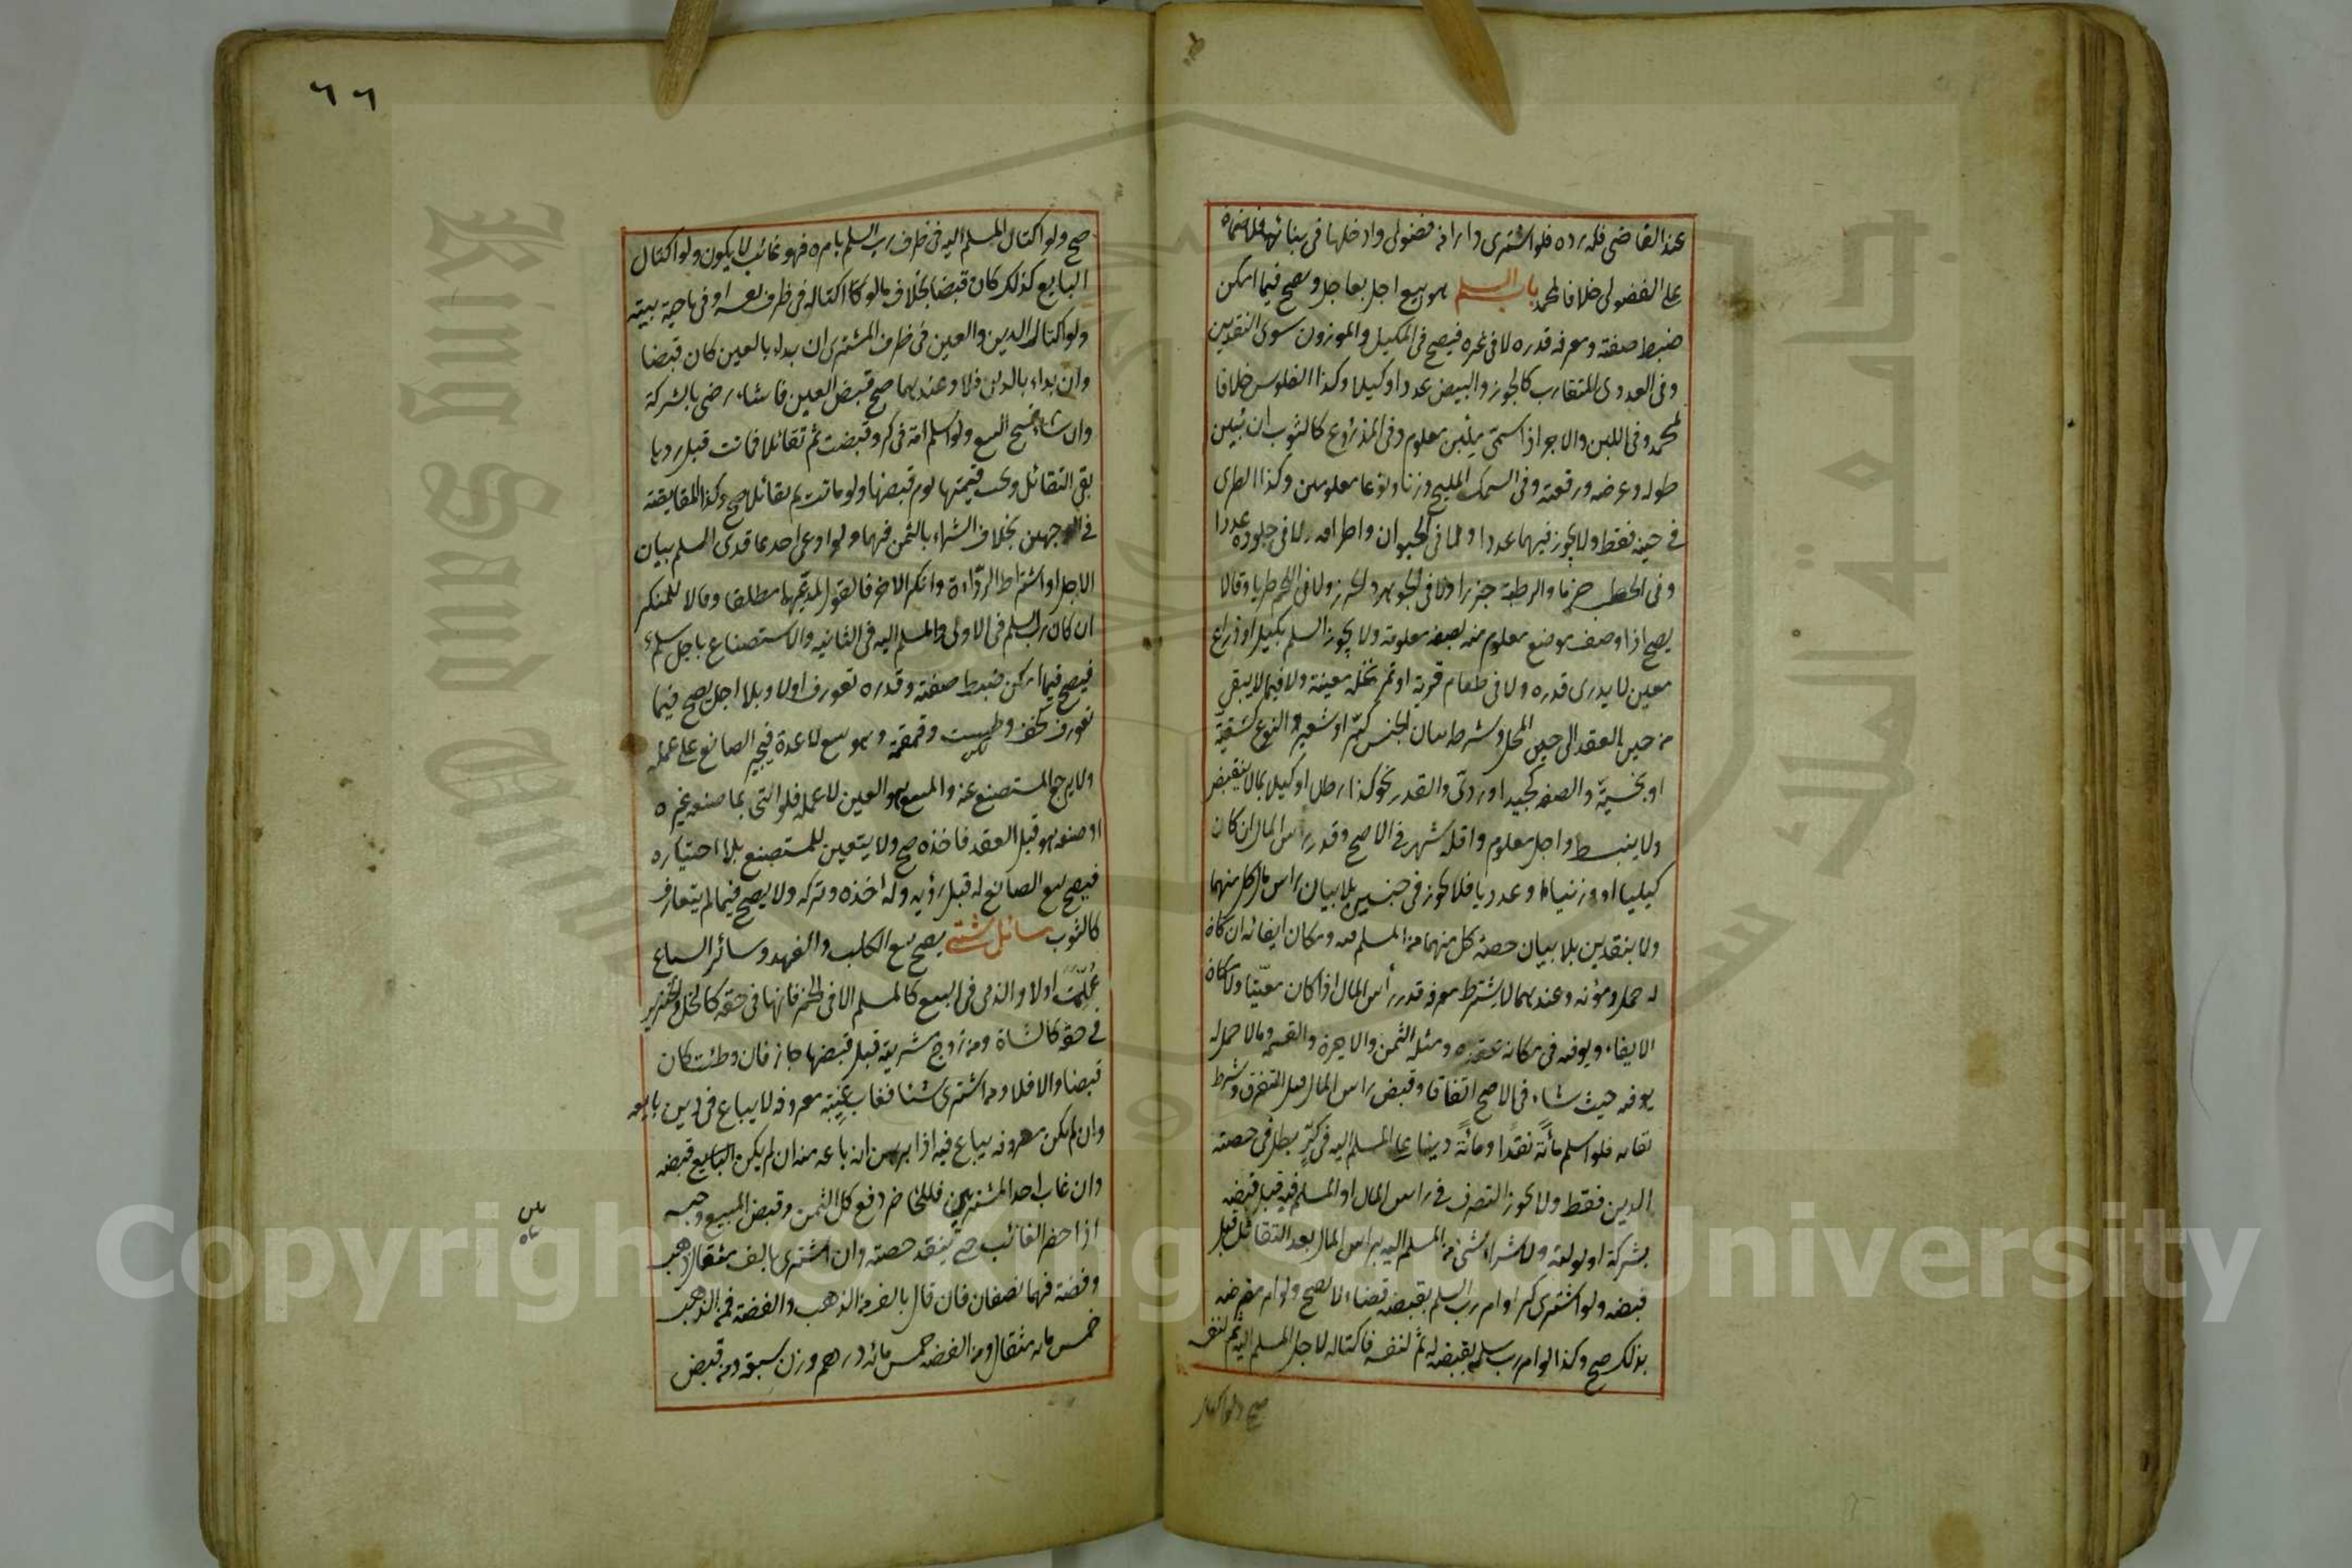 عند القاضى فله رده فلو اشترى دارا من فضولى وادخلها فى بنائه فلا ضمان
على الفضولى خلافا لمحمد باب السلم هو بيع اجل بعاجل ويصح فيما امكن
ضبط صفته ومعرفة قدره لا فى غيره فيصح فى المكيل والموزون سوى النقدين
وفى العددى المتقارب كالجوز والبيض عددا وكيلا وكذا الفلوس خلافا
لمحمد وفى اللبن والاجر اذا سمى ملبن معلوم وفى المذروع كالثوب ان بين
طوله وعرضه ورقعته وفى السمك المليح وزنا ونوعا معلومين وكذا الطرى
فى حينه فقط ولا يجوز فيهما عددا ولا فى الحيوان واطرافه ولا فى جلوده عددا
وفى الحطب حزما والرطبة جرزا ولا فى الجوهر والخرز ولا فى اللحم طريا وقالا
يصح اذا وصف موضع معلوم منه بصفة معلومة ولا يجوز السلم بكيل او ذراع
معين لا يدرى قدره ولا فى طعام قرية او تمر نخلة معينة ولا فيما لا يبقى
من حين العقد الى حين المحل وشرطه بيان الجنس كبر او شعير والنوع كسقية
او بخسية والصفة كجيد او ردى والقدر نحو كذا رطل او كيل بما لا ينقبض
ولا ينبسط واجل معلوم واقله شهر فى الاصح وقدر راس المال ان كان
كيليا او وزنيا او عدديا فلا يجوز فى جنسين بلا بيان راس مال كل منهما
ولا بنقدين بلا بيان حصة كل منهما من المسلم فيه ومكان ايفائه ان كان
له حمل ومؤنة وعندهما لا يشترط معرفة قدر رأس المال اذا كان معينا ولا مكان
الايفاء ويوفيه فى مكان عقده ومثله الثمن والاجرة والقسمة وما لا حمل له
يوفيه حيث شاء فى الاصح اتفاقا وقبض راس المال قبل التفرق وشرط
بقائه فلو اسلم مائة نقدا ومائة دينا على المسلم اليه فى كر بطل فى حصة
الدين فقط ولا يجوز التصرف فى راس المال او المسلم فيه قبل قبضه
بشركة او تولية ولا شراء شئ من المسلم اليه براس المال بعد التقائل قبل
قبضه ولو اشترى كرا وامر رب السلم بقبضه قضاء لا يصح ولو امر مقرضه
بذلك صح وكذا لو امر رب سلمه بقبضه له ثم لنفسه فاكتاله لاجل المسلم اليه ثم لنفسه
صح ولو اكتال
٦٦
صح ولو اكتال المسلم اليه فى ظرف رب السلم بامره فهو غائب لا يكون ولو اكتال
البايع كذلك كان قبضا بخلاف ما لو اكتاله فى ظرف نفسه او فى ناحية بيته
ولو اكتال الدين والعين فى ظرف المشترى ان بداء بالعين كان قبضا
وان بداء بالدين فلا وعندهما صح قبض العين فان شاء رضى بالشركة
وان شاء فسخ البيع ولو اسلم امة فى كر وقبضت ثم تقائلا فماتت قبل ردها
بقى التقائل وتجب قيمتها يوم قبضها ولو ماتت ثم تقائلا صح وكذا المقايضة
فى الوجهين بخلاف الشراء بالثمن فيهما ولو ادعى احد عاقدى السلم بيان
الاجل او اشتراط الرداءة وانكر الاخر فالقول لمدعيهما مطلقا وقالا للمنكر
ان كان رب السلم فى الاولى والمسلم اليه فى الثانيه والاستصناع باجل سلم
فيصح فيما امكن ضبط صفته وقدره تعورف اولا وبلا اجل يصح فيما
تعورف كخف وطست وقمقمة وهو بيع لا عدة فيجبر الصانع على عمله
ولا يرجع المستصنع عنه والمبيع هو العين لا عمله فلو اتى بما صنعه غيره
او صنعه هو قبل العقد فاخذه صح ولا يتعين للمستصنع بلا اختياره
فيصح بيع الصانع له قبل رؤيه وله اخذه وتركه ولا يصح فيما لم يتعارف
كالثوب مسائل شتى يصح بيع الكلب والفهد وسائر السباع
علمت اولا والذمى فى البيع كالمسلم الا فى الخمر فانها فى حقه كالخل والخنزير
فى حقه كالشاة ومن زوج مشريته قبل قبضها جاز فان وطئت كان
قبضا والا فلا ومن اشترى شئا فغاب غيبة معروفة لا يباع فى دين بايعه
وان لم يكن معروفة يباع فيه اذا برهن انه باعه منه ان لم يكن البايع قبضه
وان غاب احد المشتريين فللحاضر دفع كل الثمن وقبض المبيع وحبسه
اذا حضر الغائب حتى ينقد حصته وان اشترى بالف مثقال ذهب
وفضة فهما نصفان فان قال بالف من الذهب والفضة فمن الذهب
خمس مائه مثقال ومن الفضه خمس مائه درهم وزن سبعة ومن قبض
Copyright © King Saud University
King Saud University
جامعة الملك سعود